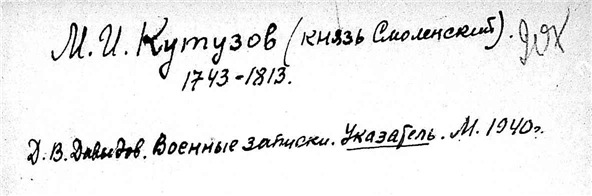 М. И. Кутузов (князь Смоленский).
1743-1813.
Д. В. Давыдов. Военные записки. Указатель. М. 1940г.